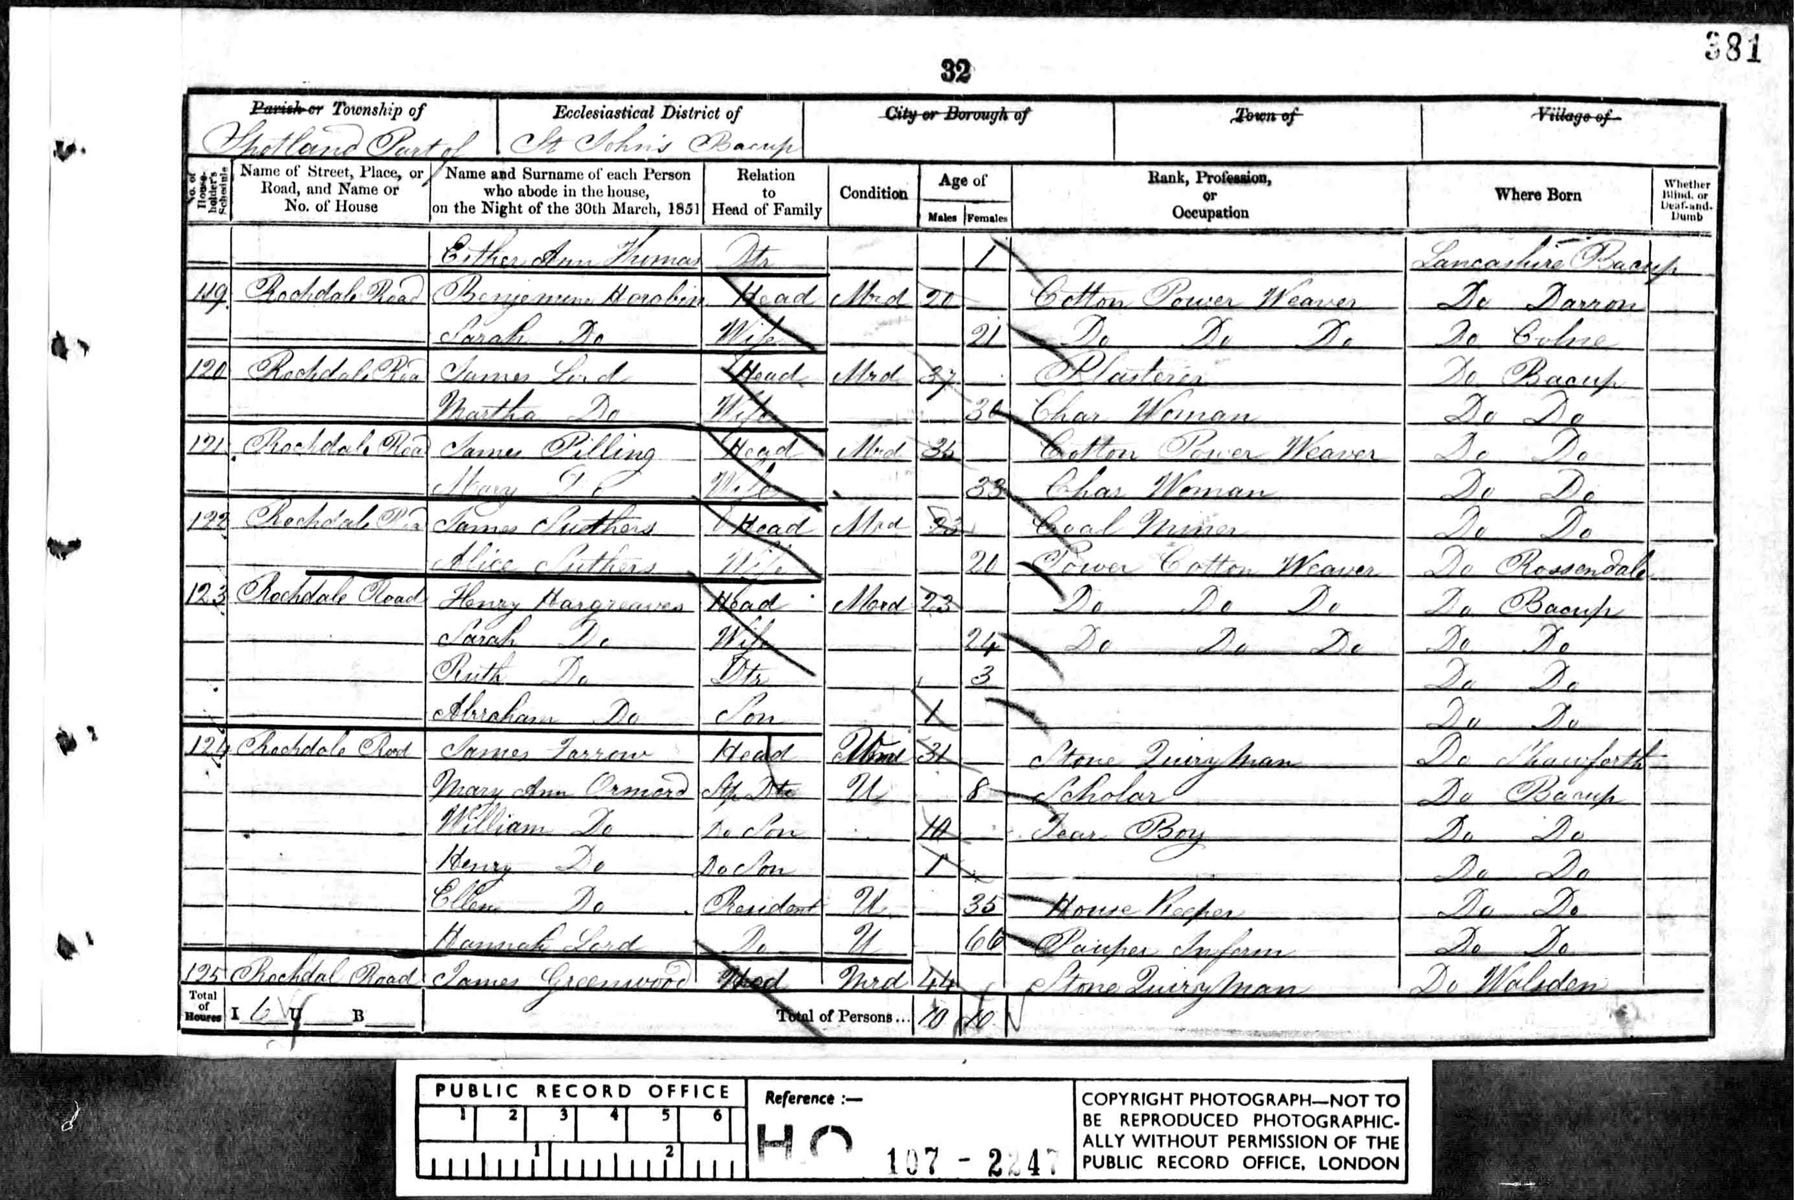 381
32
Parish or Township of
Spotland Part of
Ecclesiastical District of
St John's Bacup
City or Borough of
Town of
Village of
No. of House-holder's Schedule
Name of Street, Place, or Road, and Name or No. of House
Name and Surname of each Person who abode in the house, on the Night of the 30th March, 1851
Relation to Head of Family
Condition
Age of
Males Females
Rank, Profession, or Occupation
Where Born
Whether Blind, or Deaf-and-Dumb
Esther Ann Thomas Dtr 1 Lancashire Bacup
119 Rochdale Road Benjemine Horobin Head Mrd 20 Cotton Power Weaver Do Darron
Sarah Do Wife 21 Do Do Do Do Colne
120 Rochdale Roa James Lord Head Mrd 37 Plasterer Do Bacup
Martha Do Wife 36 Char Woman Do Do
121 Rochdale Roa James Pilling Head Mrd 34 Cotton Power Weaver Do Do
Mary Do Wife 33 Char Woman Do Do
122 Rochdale Roa James Suthers Head Mrd 23 Coal Miner Do Do
Alice Suthers Wife 20 Power Cotton Weaver Do Rossendale
123 Rochdale Road Henry Hargreaves Head Mard 23 Do Do Do Do Bacup
Sarah Do Wife 24 Do Do Do Do Do
Ruth Do Dtr 3 Do Do
Abraham Do Son 1 Do Do
124 Rochdale Rod James Farrow Head 31 Stone Quiry Man Do Shawforth
Mary Ann Ormord Stp Dtr U 8 Scholar Do Bacup
William Do Do Son 10 Tear Boy Do Do
Henry Do Do Son 1 Do Do
Ellen Do Resident U 35 House Keeper Do Do
Hannah Lord Do U 66 Pauper Inform Do Do
125 Rochdal Road James Greenwood Hed Mrd 44 Stone Quiry Man Do Walsden
Total of Houses I 6 U B Total of Persons... 10 10
PUBLIC RECORD OFFICE
1 2 3 4 5 6
1 2
Reference :—
HO 107 - 2247
COPYRIGHT PHOTOGRAPH—NOT TO
BE REPRODUCED PHOTOGRAPHIC-
ALLY WITHOUT PERMISSION OF THE
PUBLIC RECORD OFFICE, LONDON